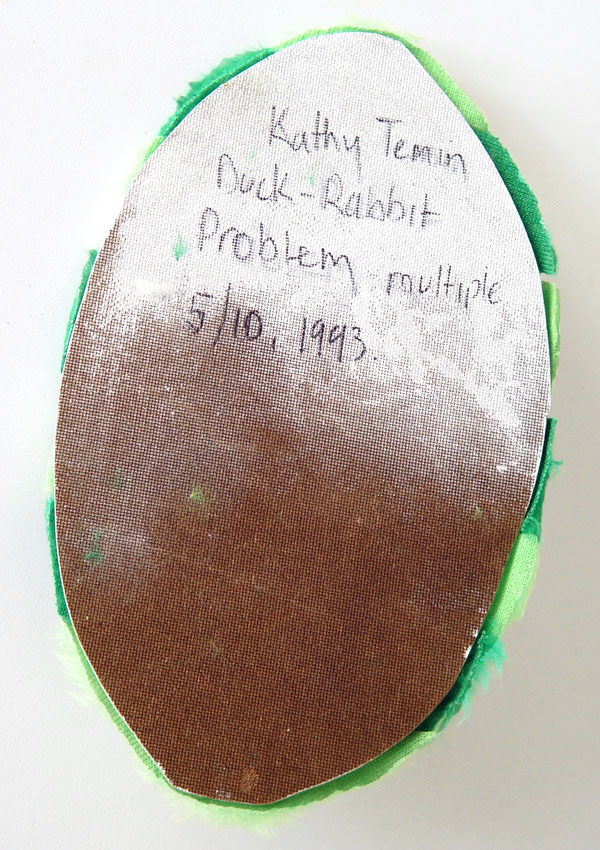 Kathy Temin
Duck-Rabbit
Problem multiple
5/10, 1993.